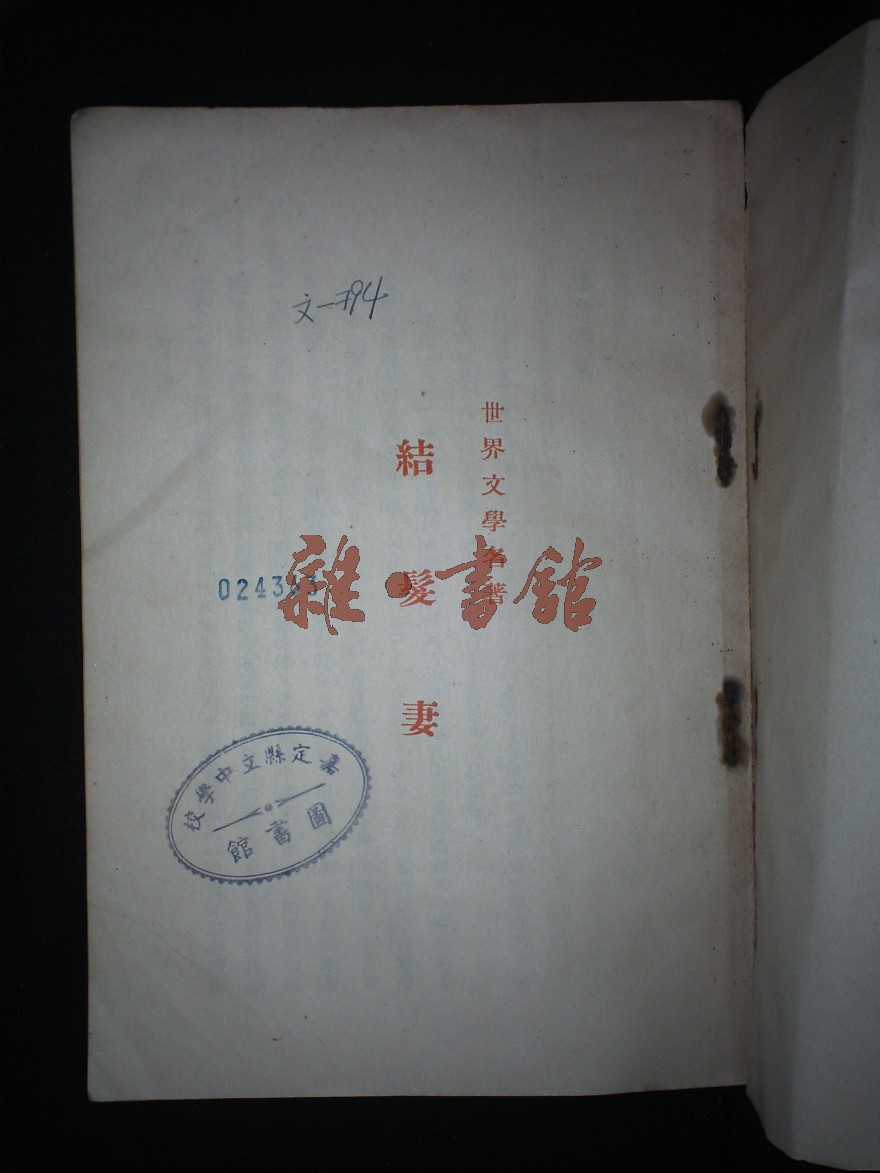 文一394
世界文學名著
結髮妻
雜·書館
嘉定縣立中學校
圖書館